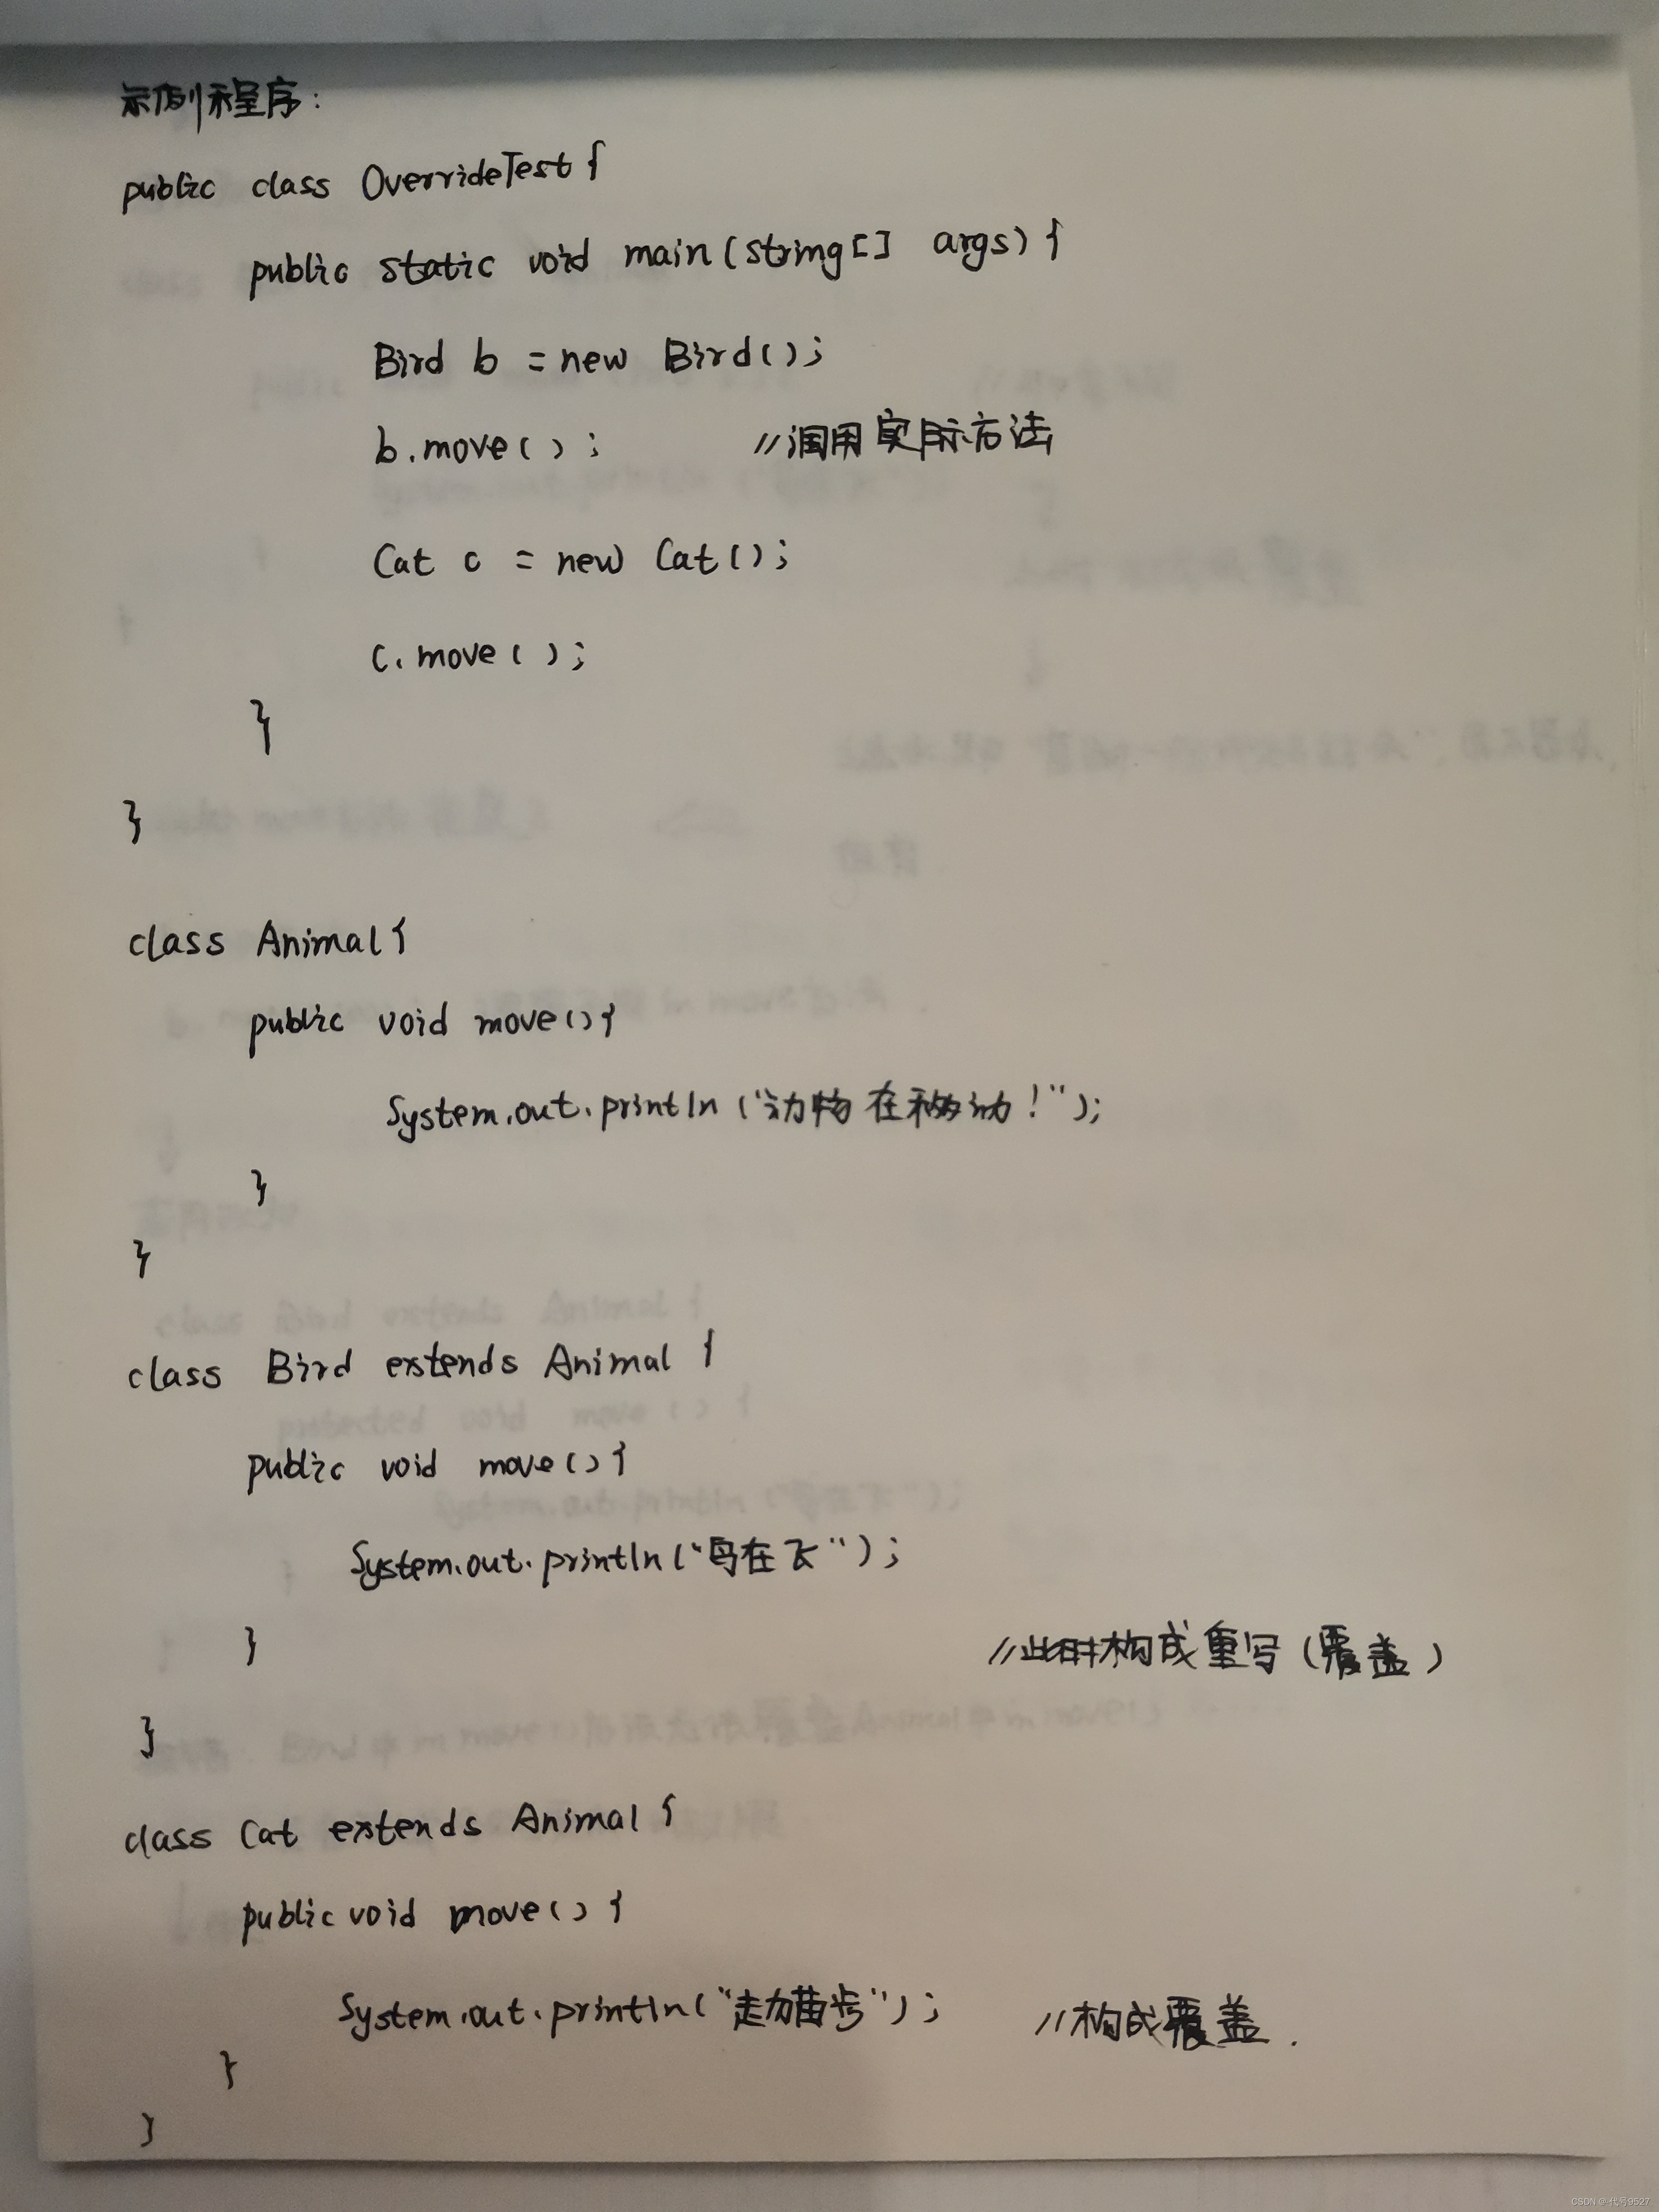 示例程序：
public class OverrideTest {
public static void main (string [] args) {
Bird b = new Bird();
b.move(); //调用实际方法
Cat c = new Cat();
c.move();
}
}
class Animal {
public void move() {
System.out.println ("动物在移动！");
}
}
class Bird extends Animal {
public void move() {
System.out.println ("鸟在飞");
} //此时构成重写（覆盖）
}
class Cat extends Animal {
public void move() {
System.out.println ("走猫步"); //构成覆盖.
}
}
CSDN @代号9527